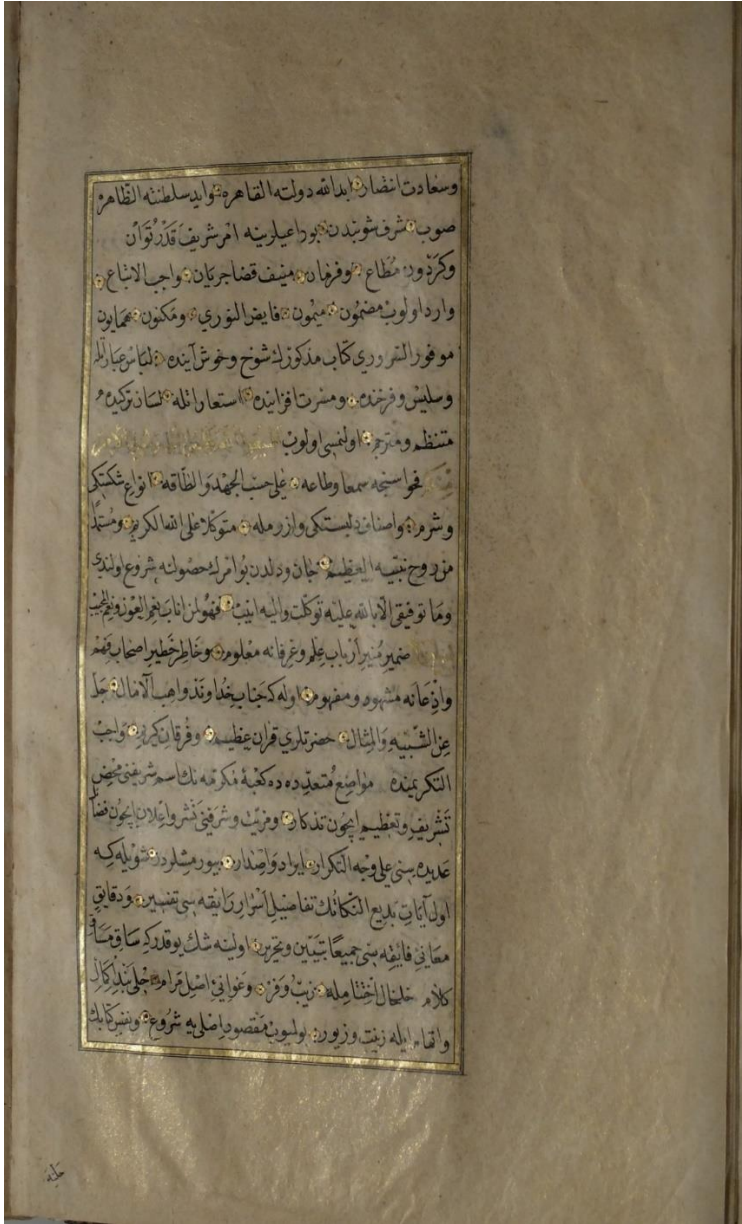 وسعادت انتصار ابد الله دولته القاهره وايد سلطنته الظاهره
صوب شرف شوبندن بو داعيلرينه امر شريف قدر توان
وكردون مطاع وفرمان منيف قضا جريان واجب الاتباع
وارد اولوب مضمون ميمون فايض النوري ومكنون همايون
موفور السروري كتاب مذكورك شوخ وخوش آينده لباس عبارتله
وسليس وفرخنده ومسرت افزاينده استعاراتله لسان تركيده
منتظم ومترجم اولنمسى اولوب
فحواسنجه سمعا وطاعه على حسب الجهد والطاقه انواع شكستكى
وشرمله واصناف دلبستكى وازرمله متوكلا على الله الكريم ومستمدا
من روح نبيه العظيم جان ودلدن بو امرك حصولنه شروع اولندى
وما توفيقى الا بالله عليه توكلت واليه انيب فهو لمن اناب نعم العون ونعم المجيب
ضمير منير ارباب علم وعرفانه معلوم وخاطر خطير اصحاب فهم
واذعانه مشهود ومفهوم اوله كه جناب خداوند واهب الآمال جل
عن الشبيه والمثال حضرتلرى قرآن عظيم وفرقان كريم واجب
التكريمنده مواضع متعدده ده كعبۀ مكرمه نك اسم شريفنى محض
تشريف وتعظيم ايچون تذكار ومزيت وشرفنى نشر واعلان ايچون فضائل
عديده سنى على وجه التكرار ايراد واصدار بيورمشلردر شويله كه
اول آيات بديع النكاتك تفاصيل اسرار رايقه سى تفسير ودقايق
معانئ فايقه سنى جميعا تبيين وتحرير اولينه شك يوقدر كه ساق مساق
كلام خلخال اختتامله زيب وفر وغوانئ اصل مرام حلى بند اكمال
وانهاء ايله زينت وزيور بولميوب مقصود اصلى يه شروع ونفس كتابك